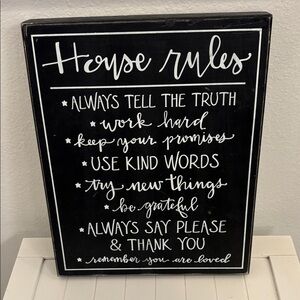 House rules
* ALWAYS TELL THE TRUTH
* work hard
* keep your promises
* USE KIND WORDS
* try new things
* be grateful
* ALWAYS SAY PLEASE
& THANK YOU
* remember you are loved